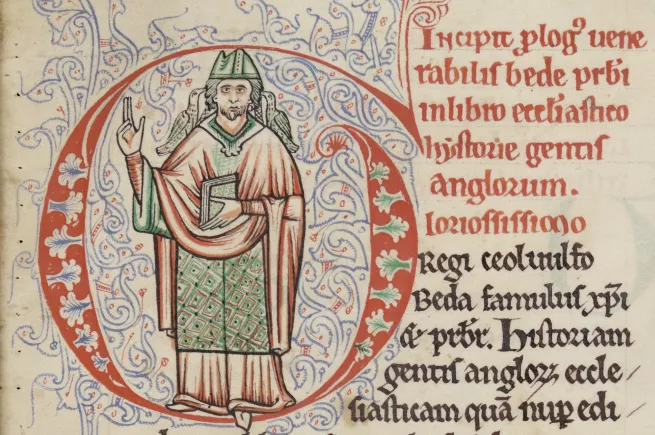 Incipit plog᾽ uene
rabilis bede prb̄i
in libro eccl̄iastico
hystorie gentis
anglorum.
loriosissimo
Regi ceoluulfo
Beda famulus xp̄i
& prb̄r. Historiam
gentis angloꝝ eccle
siasticam quā nuꝑ edi